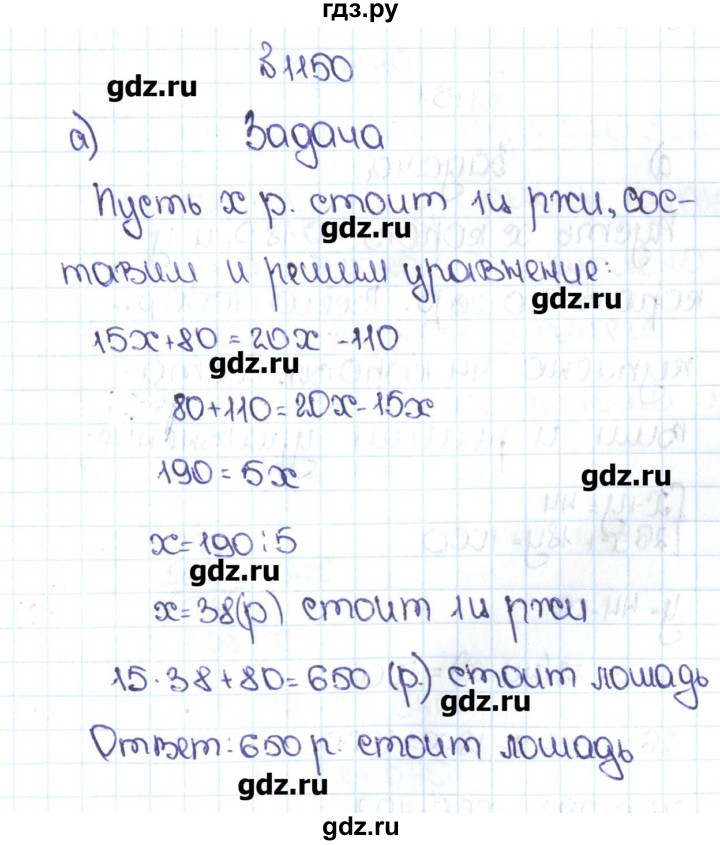 гдз.ру
№1150
gdz.ru
а) Задача
Пусть х р. стоит 1ц ржи, сос-
gdz.ru
тавим и решим уравнение:
gdz.ru
15х+80=20х-110
gdz.ru
80+110=20х-15х
190=5х
gdz.ru
х=190:5
gdz.ru
х=38(р) стоит 1ц ржи
15·38+80=650 (р.) стоит лошадь
gdz.ru
Ответ: 650 р. стоит лошадь
gdz.ru
gdz.ru